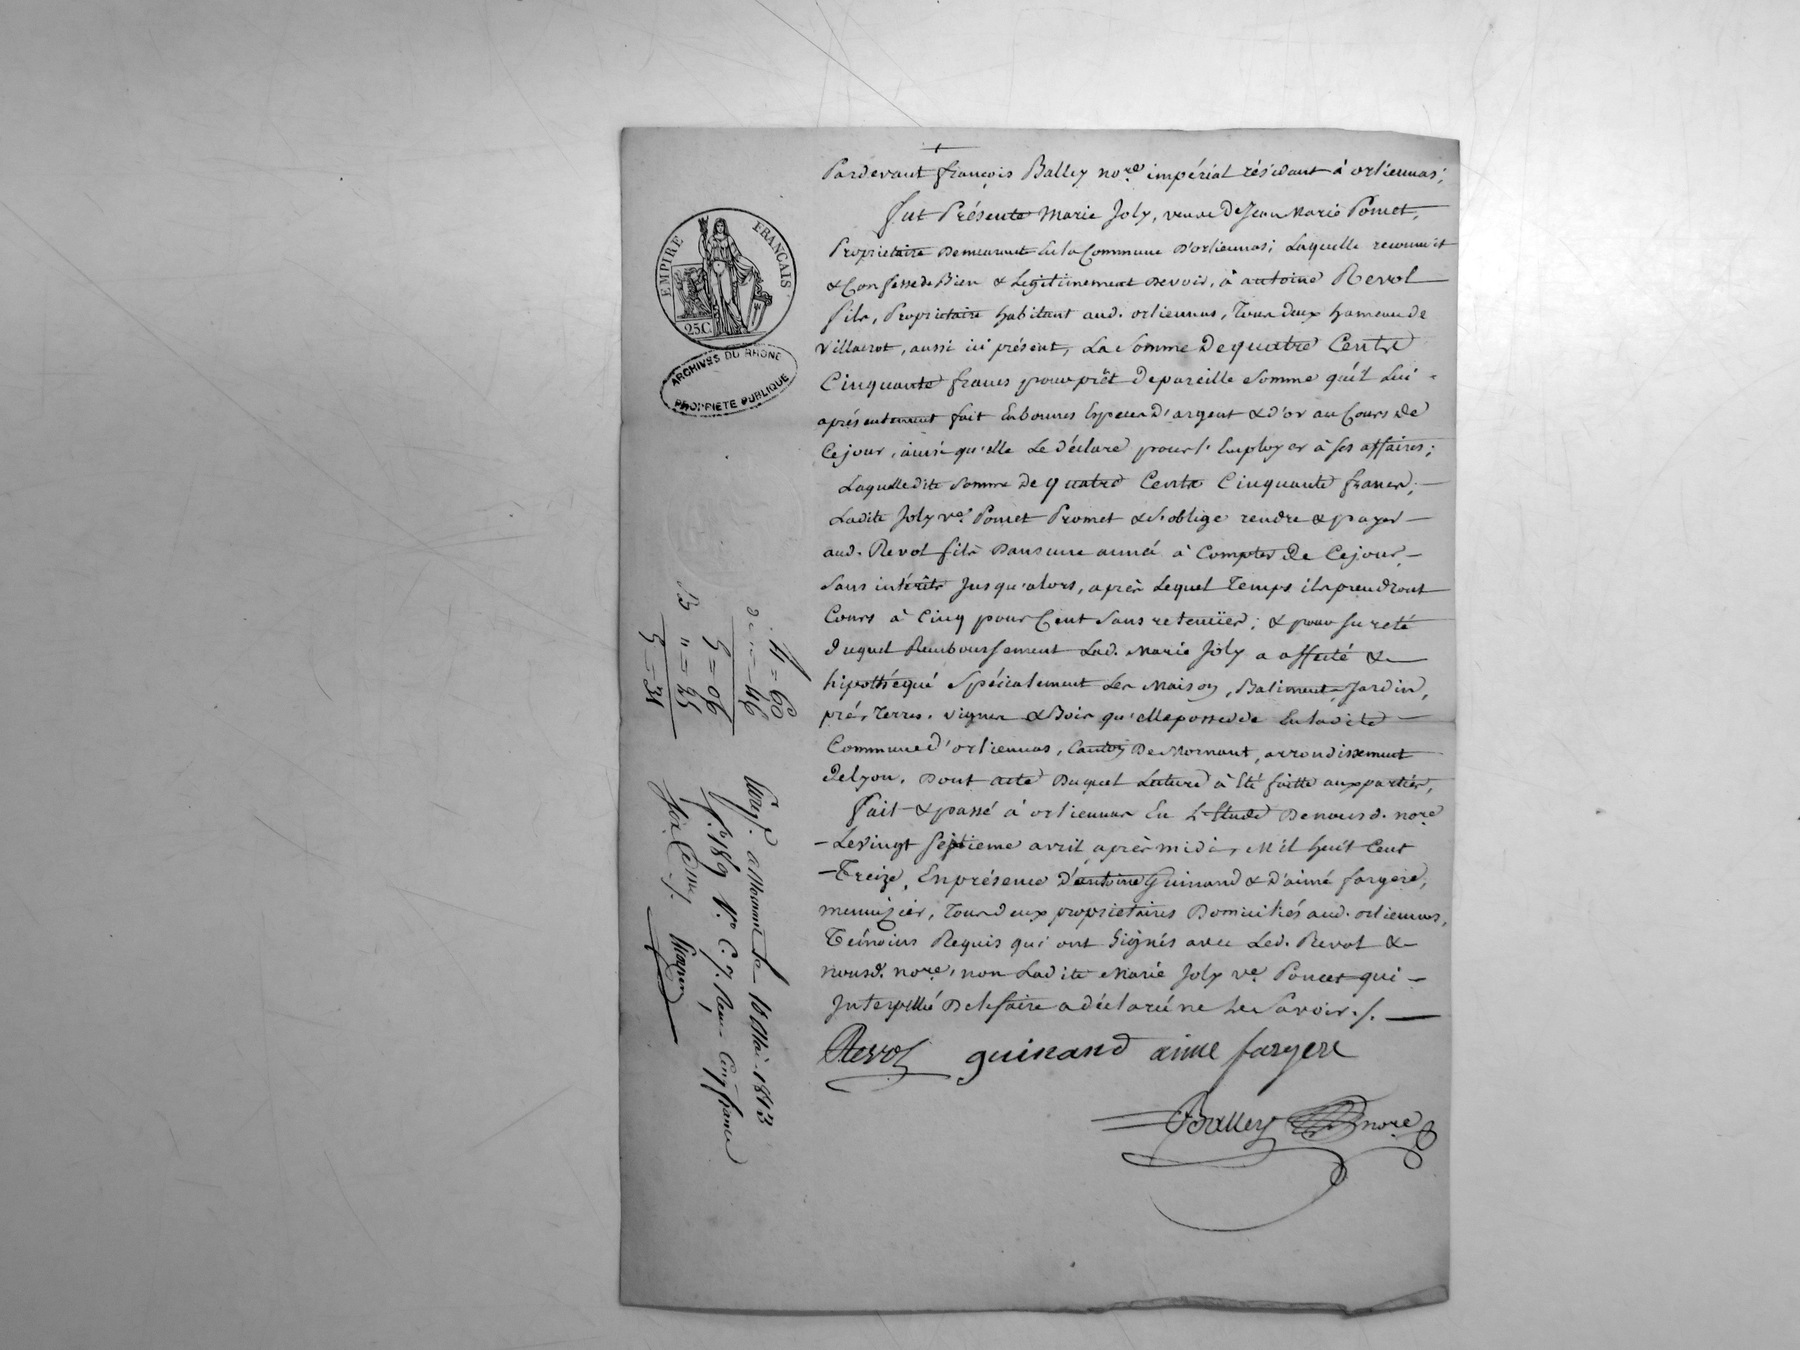 Pardevant françois Balley nore impérial résidant à orliennas;
fut Présente Marie Joly, veuve De Jean Marie Poncet,
Propriétaire Demeurant En la Commune D'orliennas; Laquelle reconnoit
& Confesse de Bien & Legitimement Devoir, à antoine Revol
fils, Proprietaire habitant aud. orliennas, Tous deux hameau de
Villacrot, aussi ici présent, La Somme De quatre Cents
Cinquante francs pour prêt De pareille Somme qu'il Lui
a présentement fait En bonnes Especes D'argent & d'or au Cours de
Ce jour, ainsi qu'elle Le déclare pour l'Employer à ses affaires;
Laquelle dite Somme De quatre Cents Cinquante francs,
Ladite Joly ve. Poncet Promet & s'oblige rendre & payer
aud. Revol fils Dans une année à Compter De Ce jour,
Sans intérêts Jusqu'alors, après Lequel Temps ils prendront
Cours à Cinq pour Cent Sans retenües; & pour sureté
duquel Remboursement Lad. Marie Joly a affecté &
hipothéqué Spécialement Les Maison, Batiment, Jardin,
pré, Terres, vignes & Bois qu'elle possedde En ladite
Commune d'orliennas, Canton De Mornant, arrondissement
de Lyon. Dont acte Duquel Lecture à Eté faitte aux parties,
fait & passé à orliennas En L'Etude De nous d. nore
Le vingt septieme avril après midi, Mil huit Cent
Treize, En présence d'antoine Guinand & D'aimé fargere,
menuizier, Tous deux proprietaires Domiciliés aud. orliennas,
Témoins Requis qui ont Signés avec Led. Revol &
nous d. nore, non Ladite Marie Joly ve Poncet qui
Interpellé De le faire a déclaré ne Le Savoir./.
Revol guinand aime fargere
Balley nore
EMPIRE FRANÇAIS
25C
ARCHIVES DU RHONE
PROPRIETE PUBLIQUE
4 = 60
= 46
5 = 06
" = 25
5 = 31
a Mornant le Mai 1813
fo 189 Vo C. 7. Reçu Cinq francs